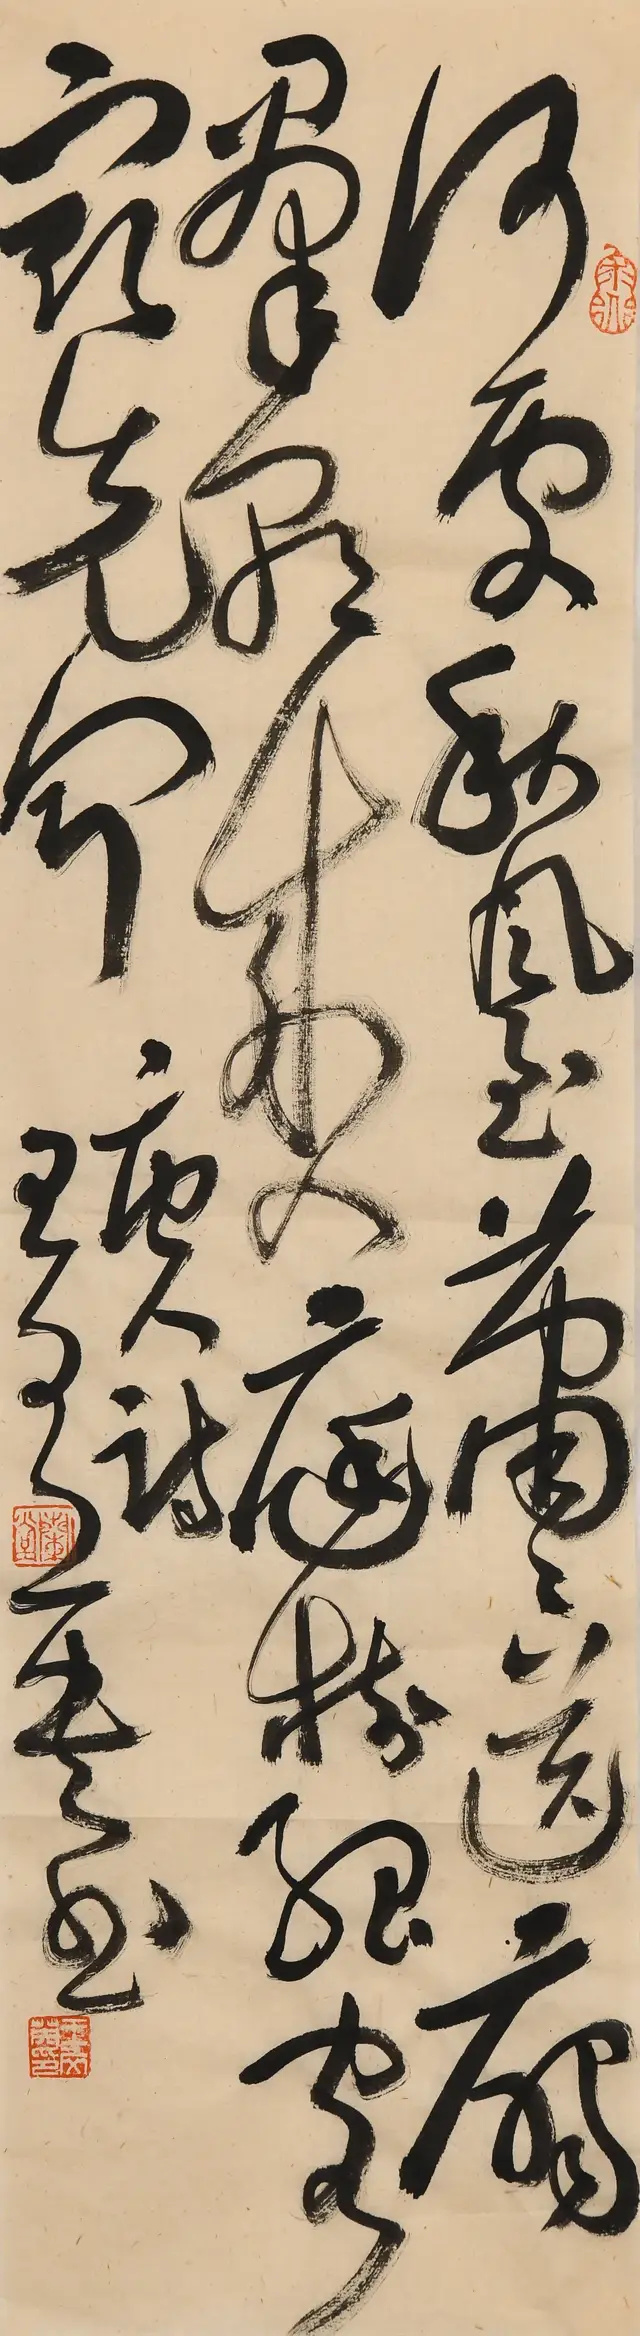 何處秋風至蕭々送鴈
群朝來入庭樹孤客
最先聞
唐人詩
書